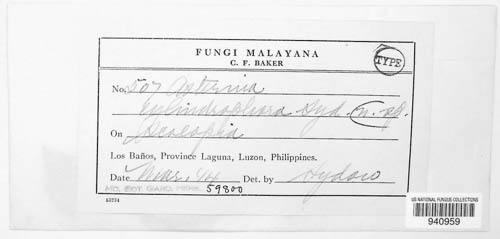 FUNGI MALAYANA
C. F. BAKER
TYPE
No. 507 Asterina
cylindrophora Syd. n. sp.
On
Los Baños, Province Laguna, Luzon, Philippines.
Date Mar. Det. by Sydow
MO. BOT. GARD. HERB. 59800
63234
US NATIONAL FUNGUS COLLECTIONS
940959